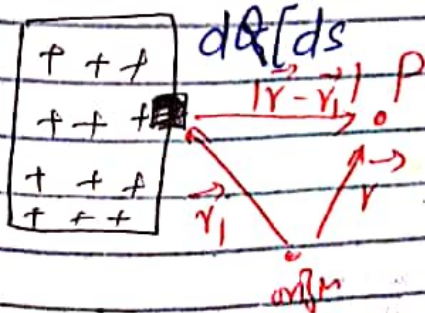 dQ [ds
+ + +
|r⃗ - r⃗₁| P
+ + +
+ + +
r⃗₁ r⃗
+ + +
origin